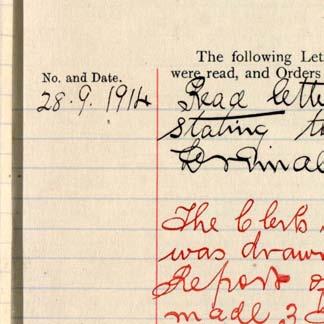 The following Let
No. and Date. were read, and Orders
28.9.1914 Read lette
stating t
The Clerk
was drawn
Report of
made 3